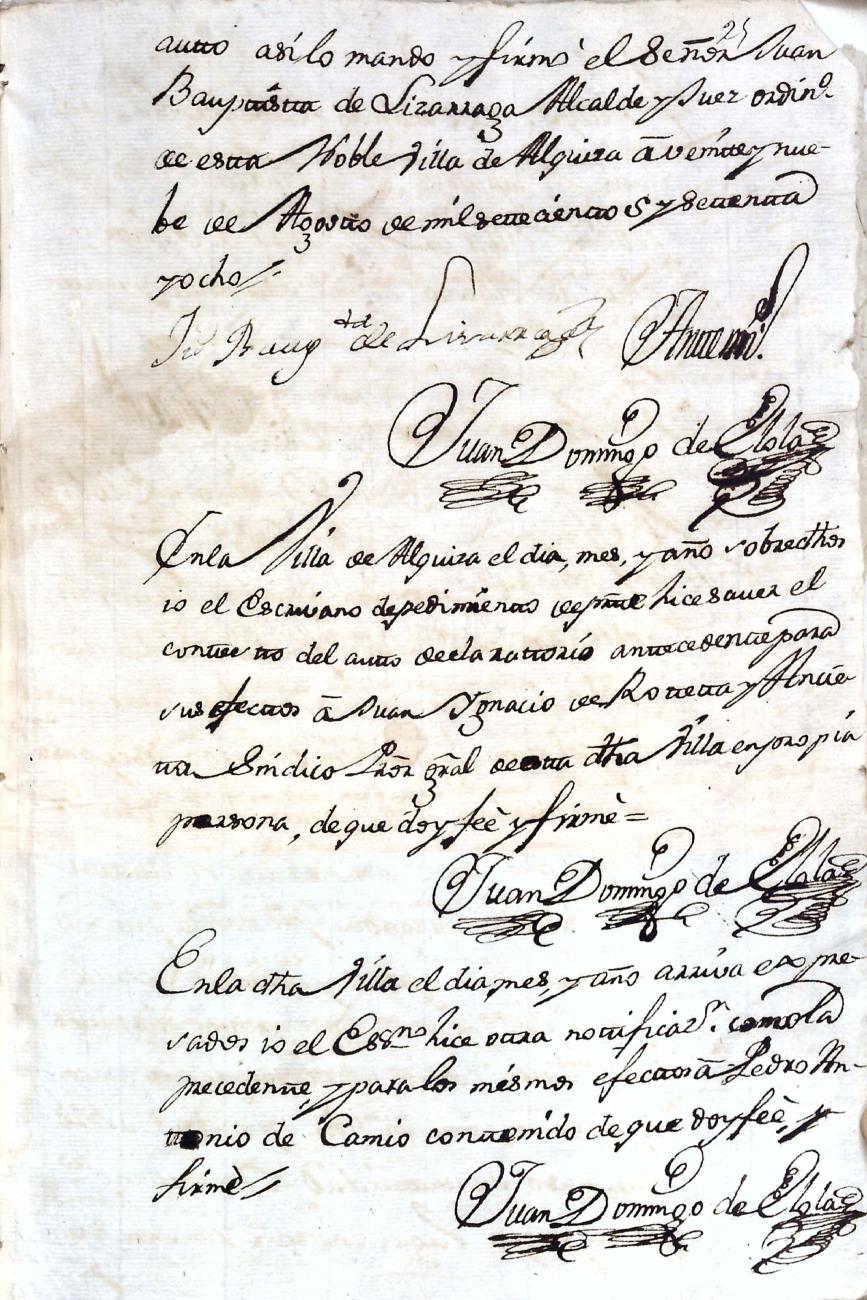 autto asilo mando y firmó el Señor Juan
Bauptista de Lizarraga Alcalde y Juez ordin.º
de estta Noble Villa de Alquiza â veinte y nue-
be de Agosto de mil settecientos y settentta
y ocho
Ju Baup tta de Lizarraga Antemi
Juan Domingo de Elola
Enla Villa de Alquiza el dia, mes, y año sobredhos
io el Escrivano de pedimiento de pntte hice saver el
contento del autto declarattorio anttecedentte para
sus efecttos â Juan Ygnacio de Rotteta y Ancie-
tta Síndico Pror gral de estta dha Villa en propia
persona, de que doy feè y firmè =
Juan Domingo de Elola
Enla dha Villa el dia, mes, y año arriva expre-
sados io el Essno hice ottra nottificazn. como la
precedentte, y para los mésmos efecttos â Pedro An-
ttonio de Camio conttenido de que doy feè, y
firmè
Juan Domingo de Elola